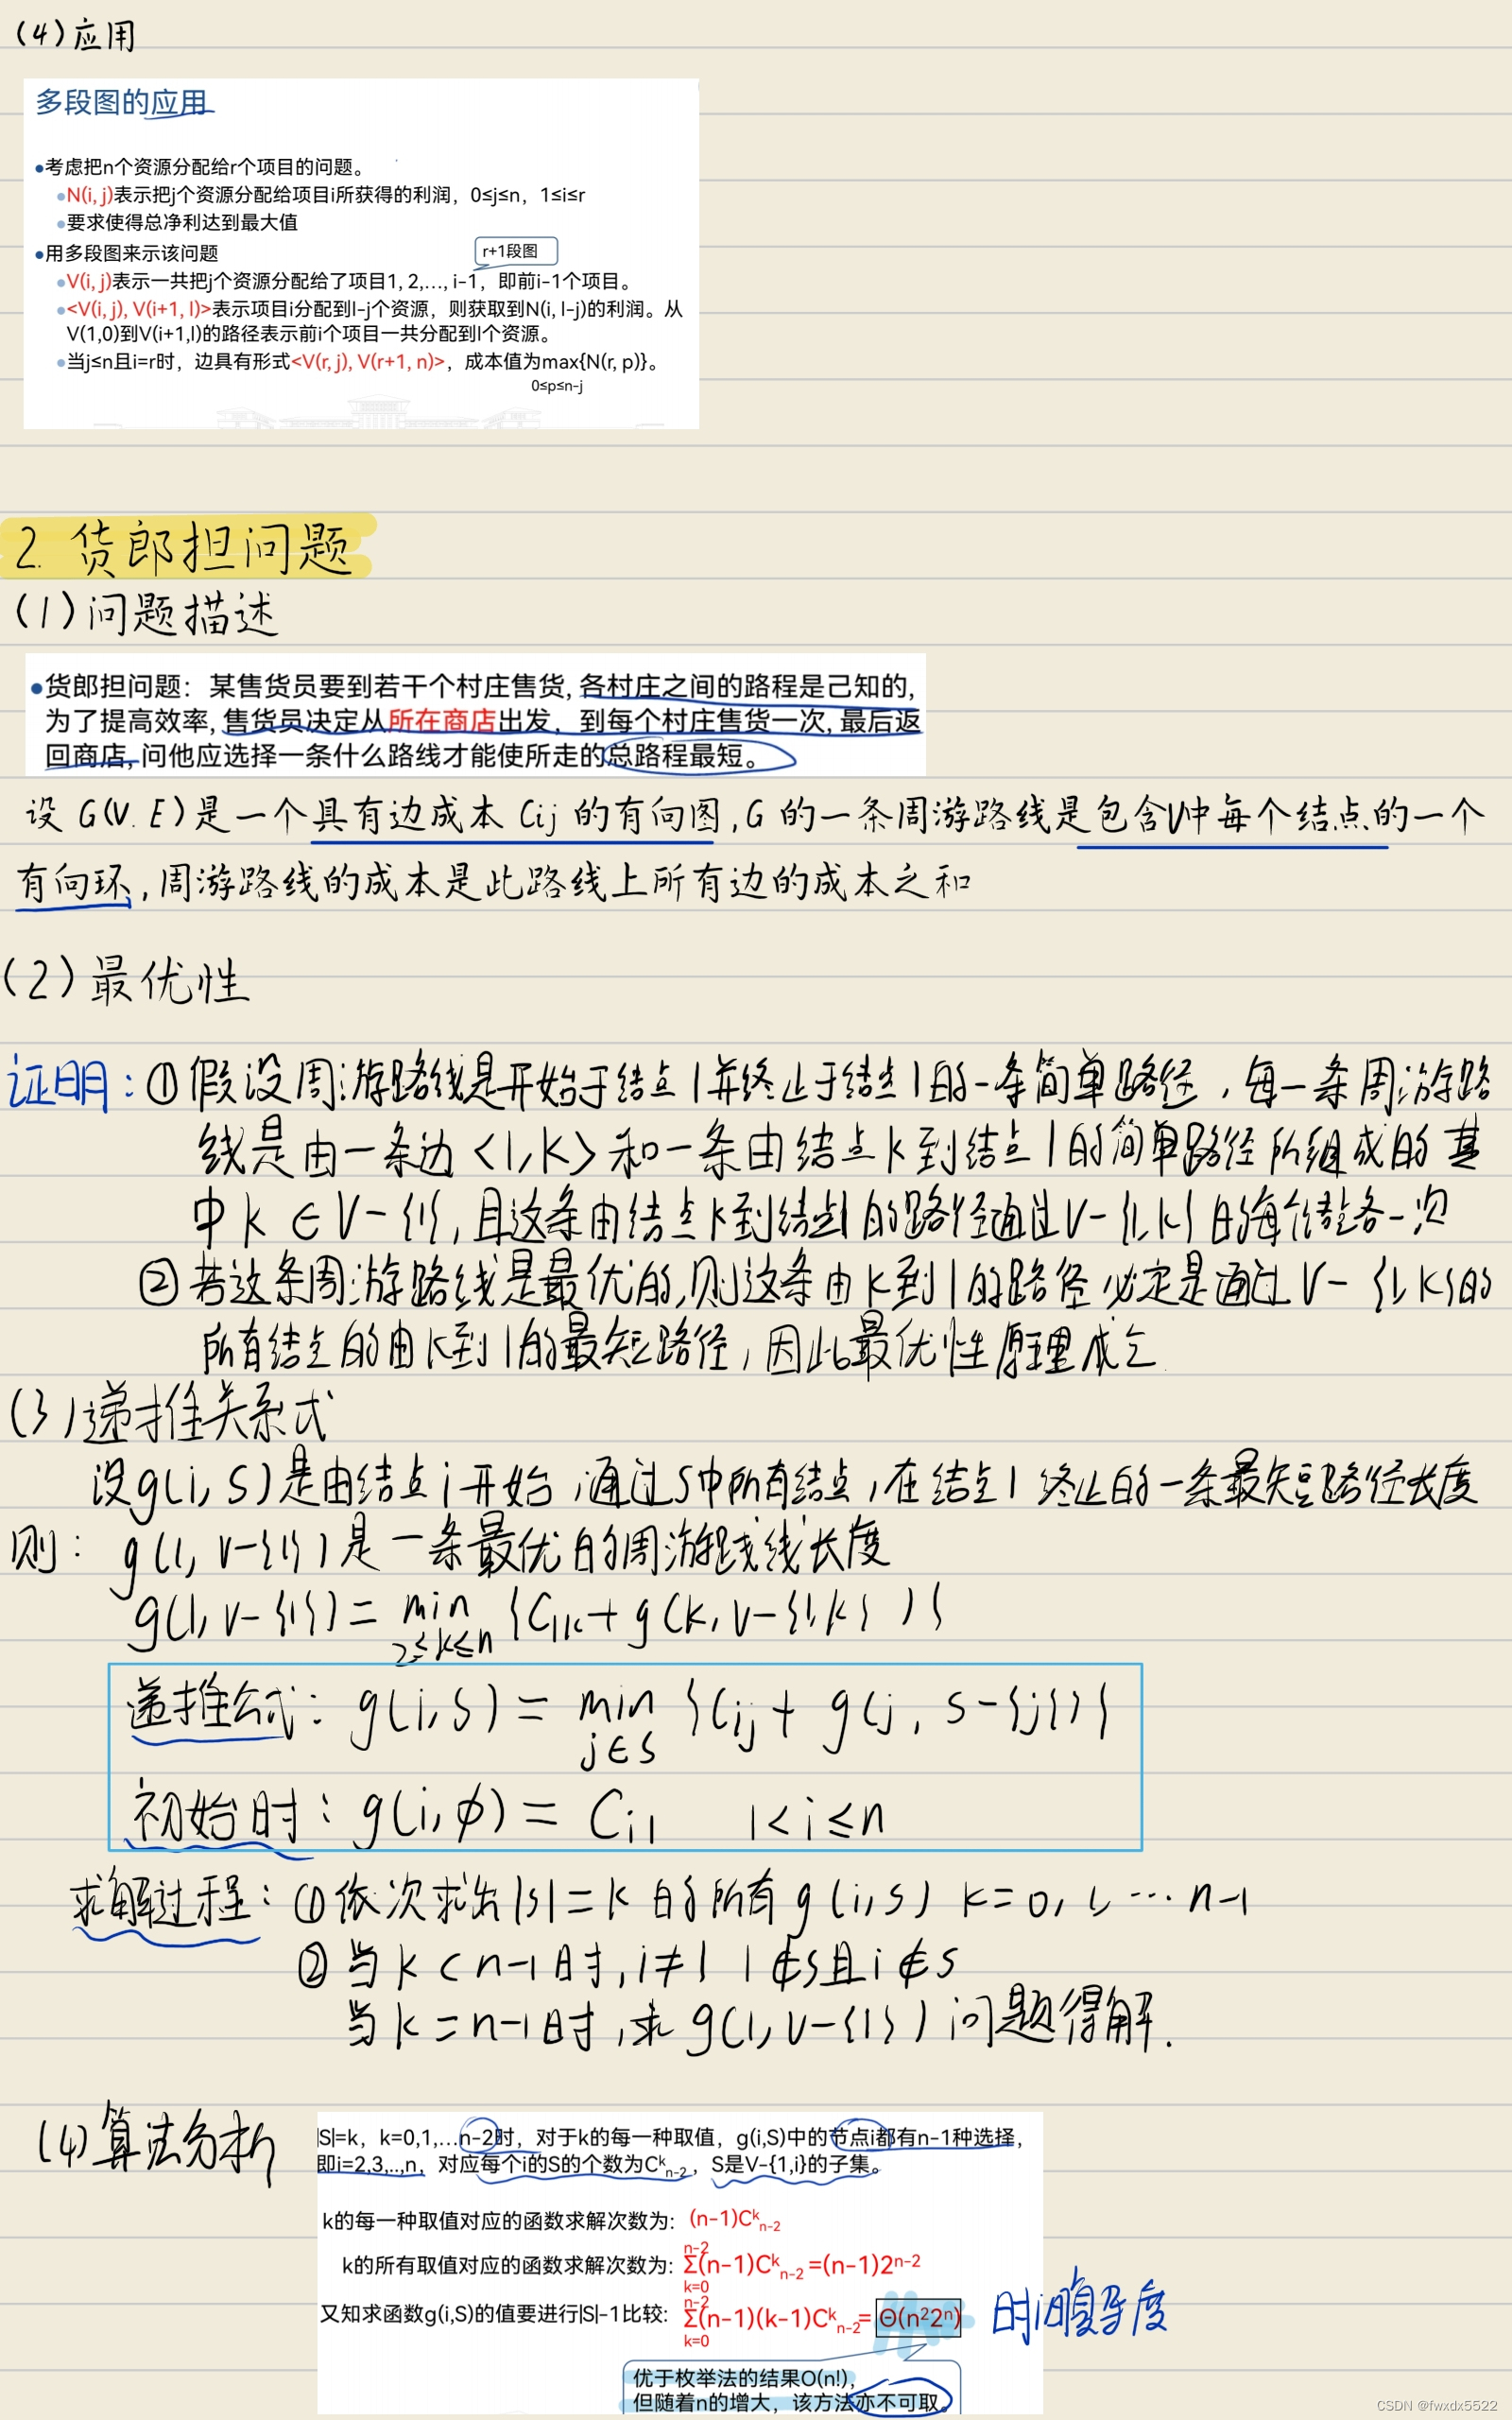 (4)应用
多段图的应用
•考虑把n个资源分配给r个项目的问题。
•N(i, j)表示把j个资源分配给项目i所获得的利润，0≤j≤n，1≤i≤r
•要求使得总净利达到最大值
•用多段图来示该问题
r+1段图
•V(i, j)表示一共把j个资源分配给了项目1, 2,…, i-1，即前i-1个项目。
•<V(i, j), V(i+1, l)>表示项目i分配到l-j个资源，则获取到N(i, l-j)的利润。从
V(1,0)到V(i+1,l)的路径表示前i个项目一共分配到l个资源。
•当j≤n且i=r时，边具有形式<V(r, j), V(r+1, n)>，成本值为max{N(r, p)}。
0≤p≤n-j
2. 货郎担问题
(1)问题描述
•货郎担问题：某售货员要到若干个村庄售货, 各村庄之间的路程是己知的,
为了提高效率, 售货员决定从所在商店出发，到每个村庄售货一次, 最后返
回商店, 问他应选择一条什么路线才能使所走的总路程最短。
设 G(V.E)是一个具有边成本 Cij 的有向图, G 的一条周游路线是包含V中每个结点的一个
有向环, 周游路线的成本是此路线上所有边的成本之和
(2)最优性
证明: ①假设周游路线是开始于结点1并终止于结点1的一条简单路径, 每一条周游路
线是由一条边<1,k>和一条由结点k到结点1的简单路径所组成的 其
中 k ∈ V-{1}, 且这条由结点k到结点1的路径通过V-{1,k}的每个结点各一次
②若这条周游路线是最优的,则这条由k到1的路径必定是通过V-{1,k}的
所有结点的由k到1的最短路径, 因此最优性原理成立.
(3)递推关系式
设g(i,S)是由结点i开始,通过S中所有结点,在结点1终止的一条最短路径长度
则: g(1, V-{1})是一条最优的周游路线长度
g(1, V-{1}) = min {C1k + g(k, V-{1,k})}
2≤k≤n
递推公式: g(i,S) = min {Cij + g(j, S-{j})}
j∈S
初始时: g(i,φ) = Ci1 1<i≤n
求解过程: ①依次求出|S|=k的所有g(i,S) k=0,1,…n-1
②当k<n-1时, i≠1 1∉S且i∉S
当k=n-1时,求g(1, V-{1})问题得解.
(4)算法分析
|S|=k，k=0,1,…n-2时，对于k的每一种取值，g(i,S)中的节点i都有n-1种选择，
即i=2,3,..,n，对应每个i的S的个数为Cᵏₙ₋₂，S是V-{1,i}的子集。
k的每一种取值对应的函数求解次数为：(n-1)Cᵏₙ₋₂
n-2
k的所有取值对应的函数求解次数为：Σ(n-1)Cᵏₙ₋₂=(n-1)2ⁿ⁻²
k=0
n-2
又知求函数g(i,S)的值要进行|S|-1比较：Σ(n-1)(k-1)Cᵏₙ₋₂=Θ(n²2ⁿ) 时间复杂度
k=0
优于枚举法的结果O(n!)，
但随着n的增大，该方法亦不可取。
CSDN @fwxdx5522